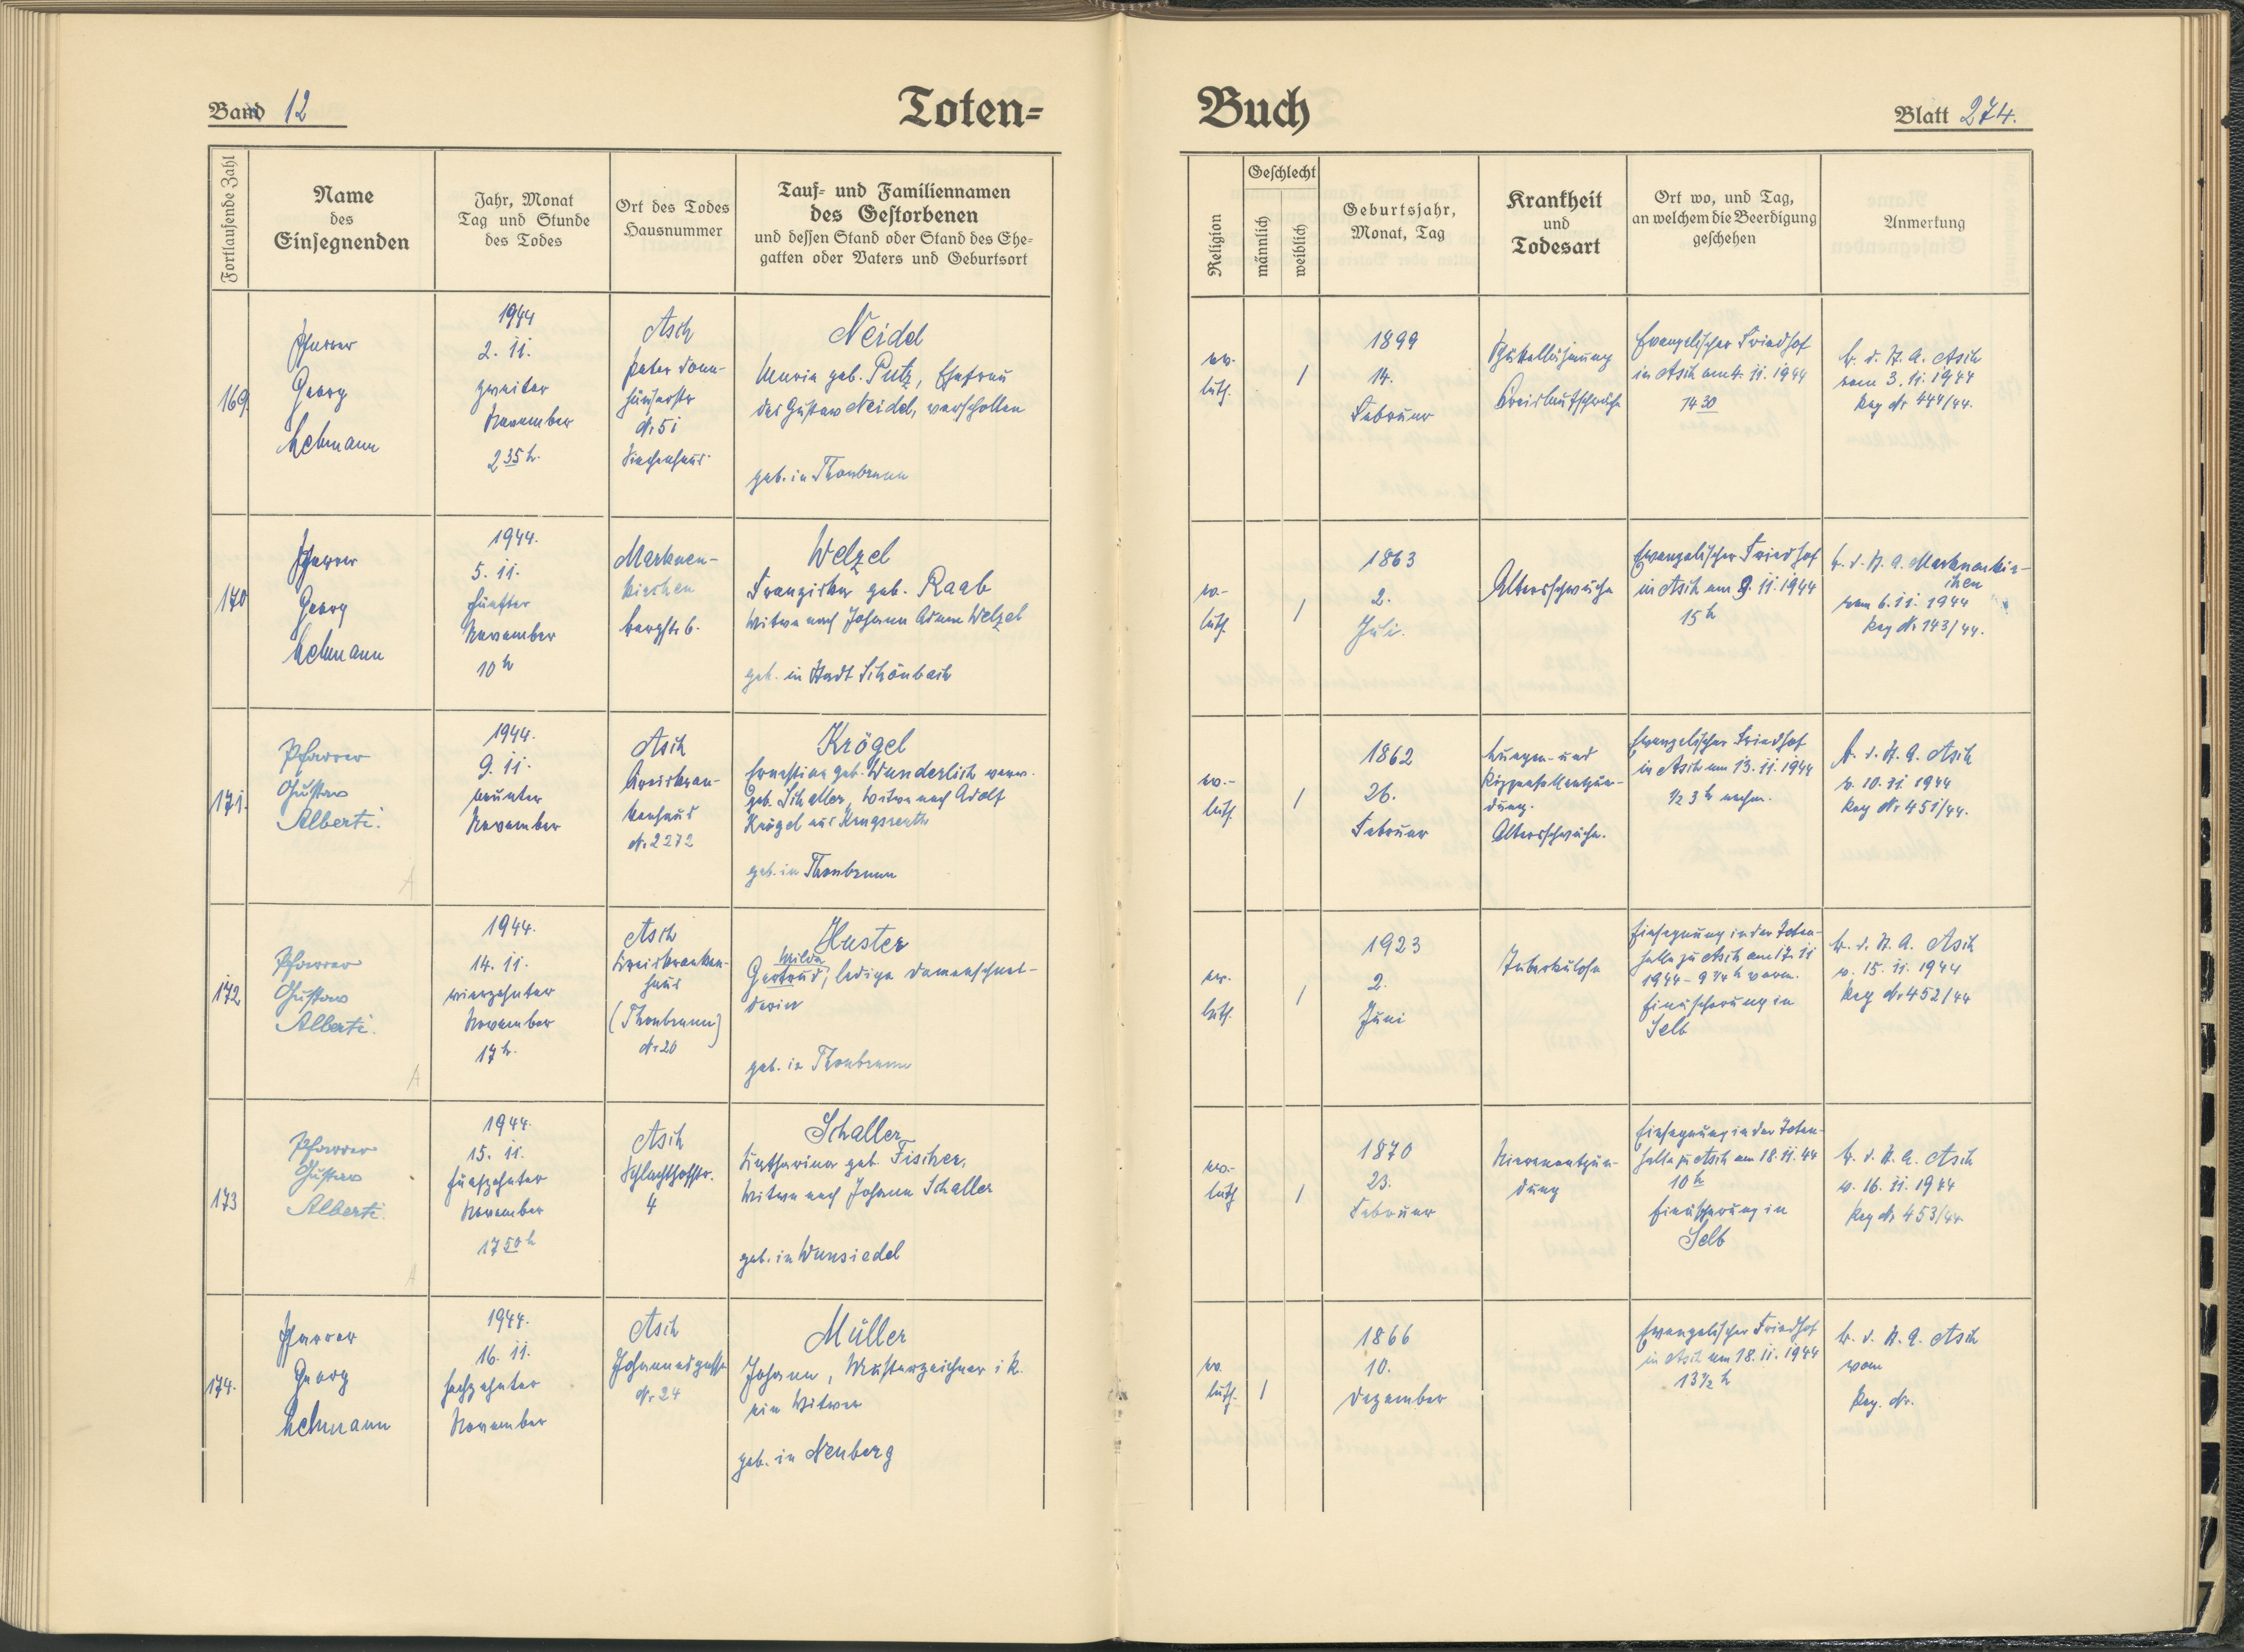 Band 12
Toten=
Fortlaufende Zahl
Name
des
Einsegnenden
Jahr, Monat
Tag und Stunde
des Todes
Ort des Todes
Hausnummer
Tauf= und Familiennamen
des Gestorbenen
und dessen Stand oder Stand des Ehe=
gatten oder Vaters und Geburtsort
169.
Pfarrer
Georg
Hehmann
1944
2. 11.
zweiter
November
2 35 h.
Asch
Nr 51
Siechenhaus
Neidel
Maria geb. Putz, Ehefrau
des Gustav Neidel, verschollen
geb. in Thonbrunn
170
Pfarrer
Georg
Hehmann
1944.
5. 11.
fünfter
November
10 h
Markneu-
kirchen
Bergstr 6.
Welzel
Franziska geb. Raab
Witwe nach Johann Adam Welzel
geb. in Stadt Schönbach
171.
Pfarrer
Gustav
Alberti.
1944.
9. 11.
neunter
November
Asch
Kreiskran-
kenhaus
Nr 2272
Krögel
Ernestine geb. Wunderlich verw.
geb. Schaller, Witwe nach Adolf
Krögel aus Krugsreuth
geb. in Thonbrunn
172
Pfarrer
Gustav
Alberti.
1944.
14. 11.
vierzehnter
November
17 h.
Asch
Kreiskranken-
haus
(Thonbrunn)
Nr 20
Huster
Milda
Gertrud, ledige Damenschnei-
derin
geb. in Thonbrunn
173
Pfarrer
Gustav
Alberti.
1944.
15. 11.
fünfzehnter
November
17 50 h
Asch
Schlachthofstr.
4
Schaller
Katharina geb. Fischer,
Witwe nach Johann Schaller
geb. in Wunsiedel
174.
Pfarrer
Georg
Hehmann
1944.
16. 11.
sechzehnter
November
Asch
Johannesgasse
Nr 24
Müller
Johann, Musterzeichner i. R.
ein Witwer
geb. in Neuberg
Buch
Blatt 274.
Religion
Geschlecht
männlich
weiblich
Geburtsjahr,
Monat, Tag
Krankheit
und
Todesart
Ort wo, und Tag,
an welchem die Beerdigung
geschehen
Anmerkung
ev.
luth.
1
1899
14.
Februar
Kreislaufschwäche
Evangelischer Friedhof
in Asch am 4. 11. 1944
14 30
B. d. St. A. Asch
vom 3. 11. 1944
Reg Nr 444/44.
ev.-
luth.
1
1863
2.
Juli.
Altersschwäche
Evangelischer Friedhof
in Asch am 9. 11. 1944
15 h
B. d. St. A. Markneukir-
chen
vom 6. 11. 1944
Reg Nr 143/44.
ev.-
luth.
1
1862
26.
Februar
Lungen- und
Rippenfellentzün-
dung.
Altersschwäche.
Evangelischer Friedhof
in Asch am 13. 11. 1944
1/2 3 h nachm.
B. d. St. A. Asch
v. 10. 11. 1944
Reg Nr 451/44.
ev.
luth.
1
1923
2.
Juni
Tuberkulose
Einsegnung in der Toten-
halle zu Asch am 17. 11
1944 - 9 1/4 h vorm.
Einäscherung in
Selb
B. d. St. A. Asch
v. 15. 11. 1944
Reg Nr 452/44
ev.-
luth
1
1870
23.
Februar
Nierenentzün-
dung
Einsegnung in der Toten-
halle zu Asch am 18. 11. 44
10 h
Einäscherung in
Selb
B. d. St. A. Asch
v. 16. 11. 1944
Reg Nr 453/44
ev.
luth.
1
1866
10.
Dezember
Evangelischer Friedhof
in Asch am 18. 11. 1944
13 1/2 h
B. d. St. A. Asch
vom
Reg. Nr.